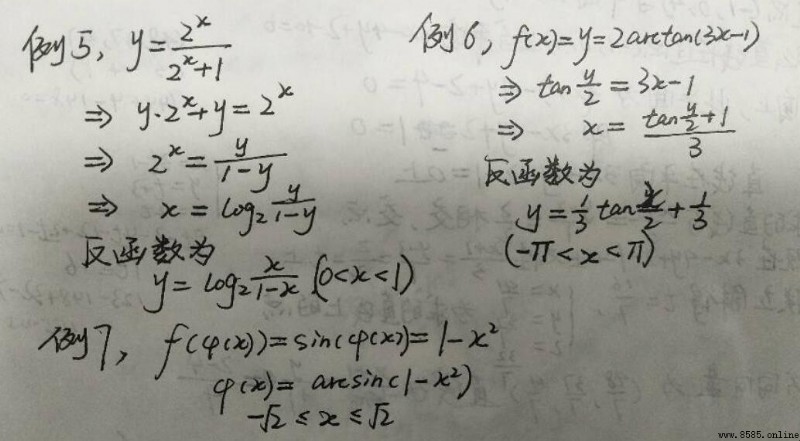 例5, y = 2^x / (2^x+1)
⇒ y·2^x + y = 2^x
⇒ 2^x = y / (1-y)
⇒ x = log₂ y/(1-y)
反函数为
y = log₂ x/(1-x) (0<x<1)
例6, f(x) = y = 2arctan(3x-1)
⇒ tan y/2 = 3x-1
⇒ x = (tan y/2 + 1) / 3
反函数为
y = 1/3 tan x/2 + 1/3
(-π < x < π)
例7, f(φ(x)) = sin(φ(x)) = 1-x²
φ(x) = arcsin(1-x²)
-√2 ≤ x ≤ √2
www.8585.online